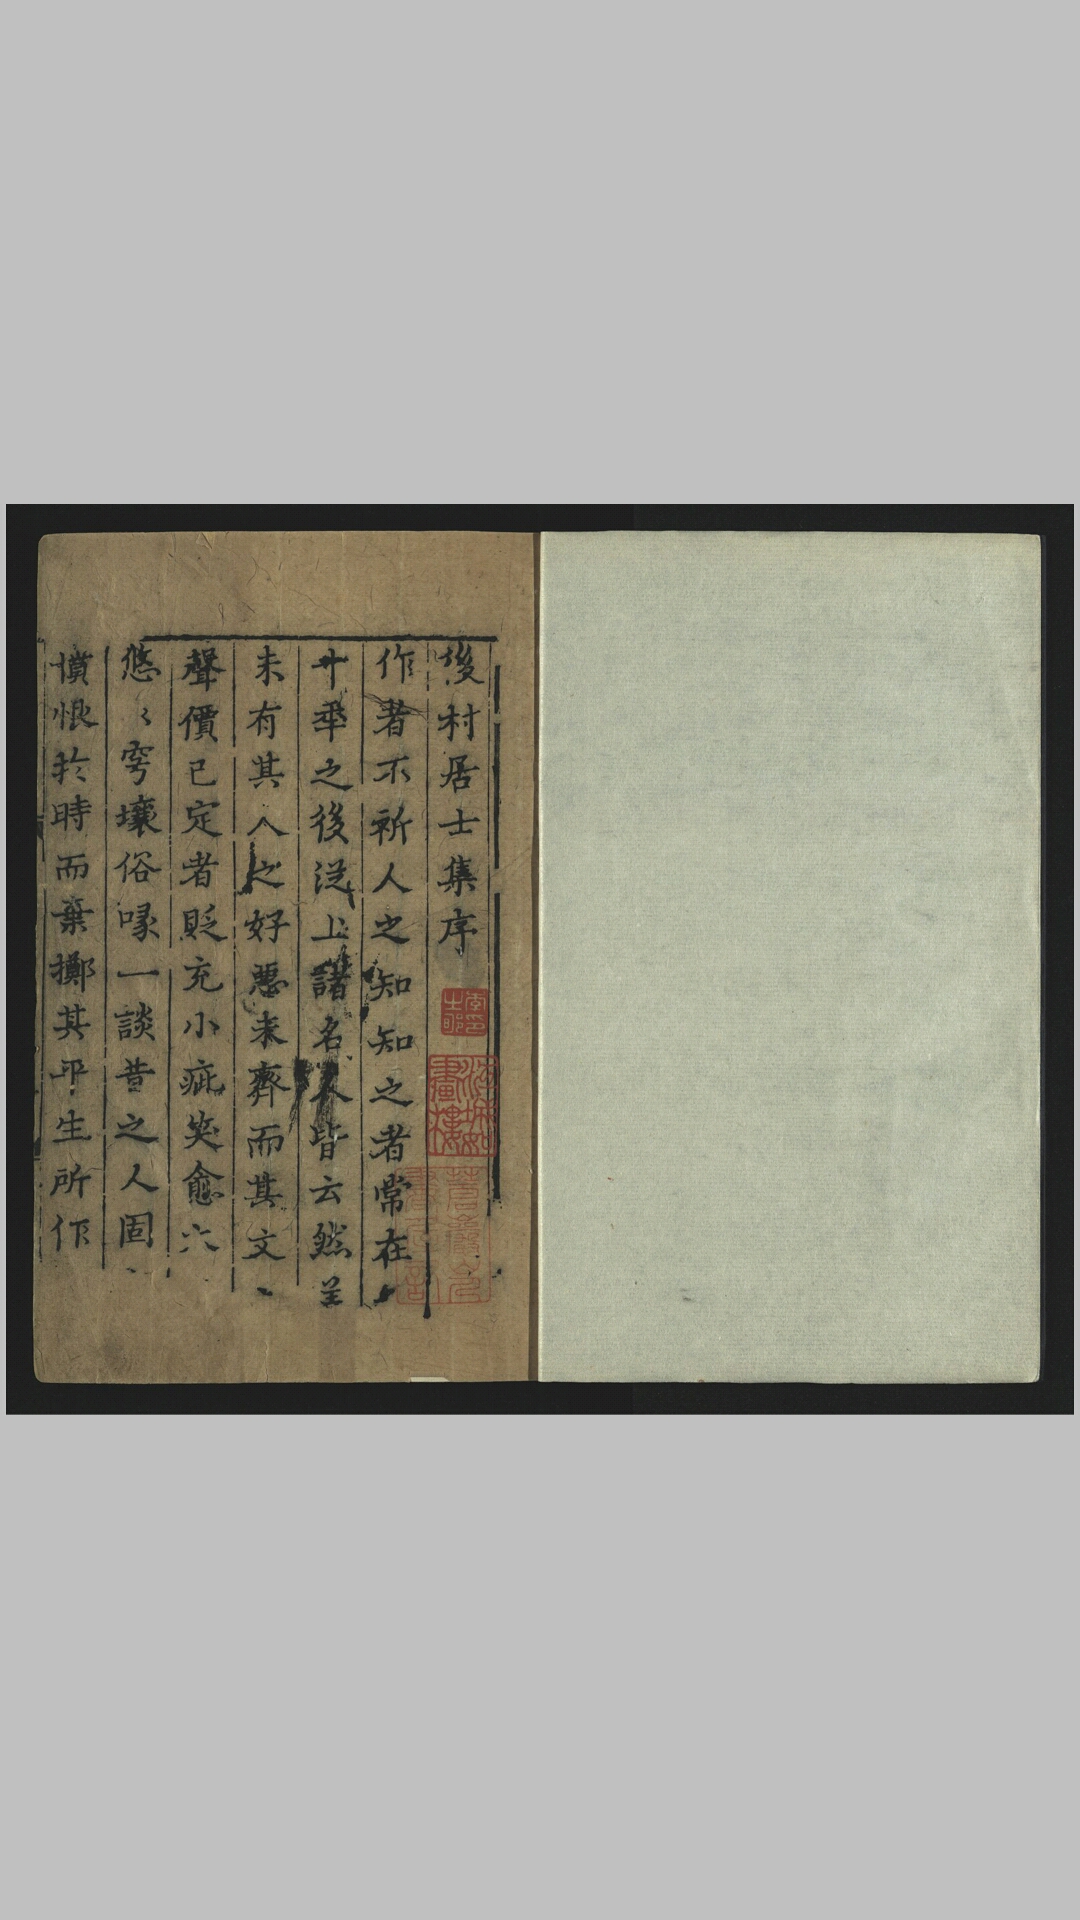 後村居士集序
作者不祈人之知知之者常在
十年之後從上諸名人皆云然
未有其人之好惡未齊而其文
聲價已定者貶充小疵笑愈六
悠〻穹壤俗喙一談昔之人固
憤恨於時而棄擲其平生所作